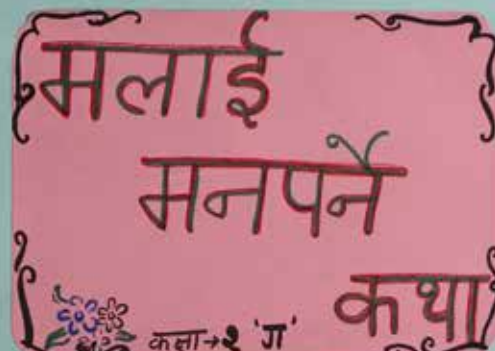 मलाई
मनपर्ने
कथा
कक्षा→२ 'ग'